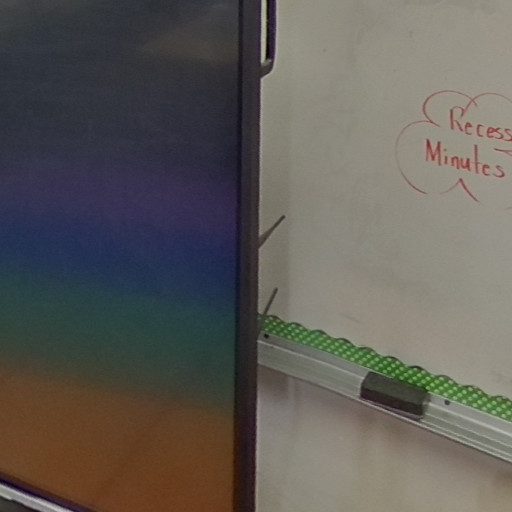 Recess
Minutes